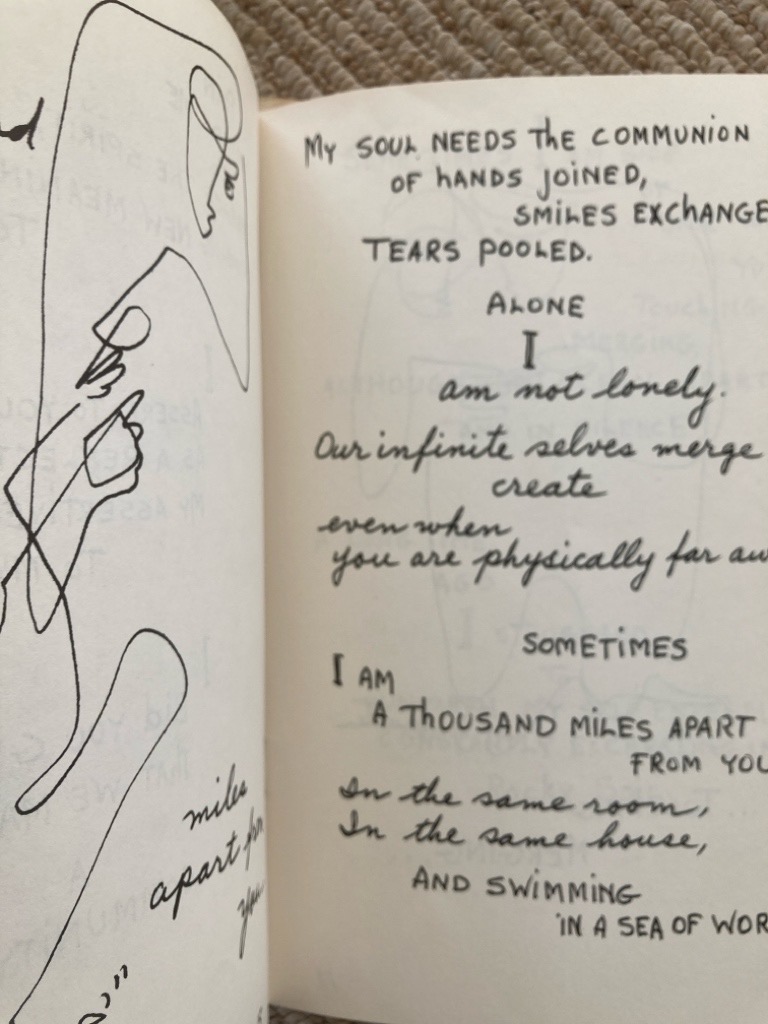 miles
apart from
you
My SOUL NEEDS The COMMUNION
OF hANDS JOINED,
SMILES EXCHANGE
TEARS POOLED.
ALONE
I
am not lonely.
Our infinite selves merge
create
even when
you are physically far aw
SOMETIMES
I AM
A ThOUSAND MILES APART
FROM YOU
In the same room,
In the same house,
AND SWIMMING
IN A SEA OF WOR